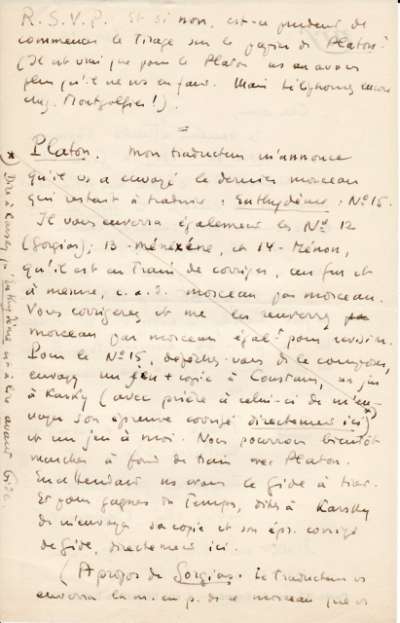 R.S.V.P. Et si non, est-ce prudent de
commencer le tirage sur le papier de Platon?
(Il est vrai que pour le Platon ns en avons
plus qu'il ne ns en faut. Mais téléphonez encore
chez Montgolfier!).
=
Platon. Mon traducteur m'annonce
qu'il vs a envoyé le dernier morceau
qui restait à traduire: Euthydème, No 15.
Il vous enverra également les Nos 12
(Gorgias), 13-Ménéxène, et 14-Ménon,
qu'il est en train de corriger, au fur et
à mesure, c.à.d. morceau par morceau.
Vous corrigerez et me les renverrez
morceau par morceau égalt pour révision.
Pour le No 15, dépêchez-vous de le composer,
envoyez un jeu + copie à Constant, un jeu
à Karsky (avec prière à celui-ci de m'en-
voyer son épreuve corrigé directement ici)*
et un jeu à moi. Nous pourrons bientôt
marcher à fond de train avec Platon.
En attendant ns avons le Gide à tirer.
Et pour gagner du temps, dites à Karsky
de m'envoyer sa copie et son épr. corrigé
de Gide, directement ici.
(A propos de Gorgias. Le traducteur vs
enverra la m. en p. de ce morceau que vs
* Dire à Karsky que Euthydème est à lire avant Gide.